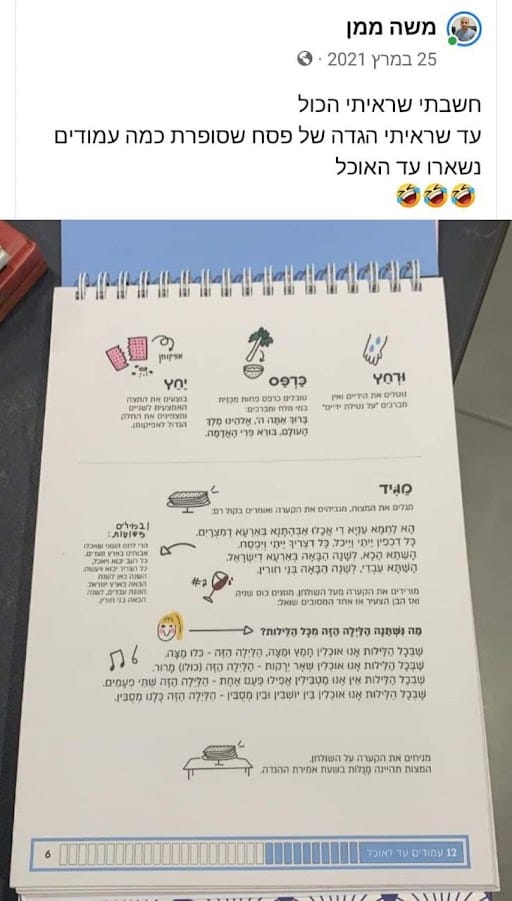 משה ממן
25 במרץ 2021
חשבתי שראיתי הכול
עד שראיתי הגדה של פסח שסופרת כמה עמודים
נשארו עד האוכל
🤣🤣🤣
וּרְחַץ
נוטלים את הידיים ואין
מברכים "על נטילת ידיים"
כַּרְפַּס
טובלים כרפס פחות מכַּזַּיִת
במי מלח ומברכים:
בָּרוּךְ אַתָּה ה', אֱלֹהֵינוּ מֶלֶךְ
הָעוֹלָם, בּוֹרֵא פְּרִי הָאֲדָמָה.
אפיקומן
יַחַץ
בוצעים את המצה
האמצעית לשניים
ומצפינים את החלק
הגדול לאפיקומן.
מַגִּיד
מגלים את המצות, מגביהים את הקערה ואומרים בקול רם:
הָא לַחְמָא עַנְיָא דִּי אֲכָלוּ אַבְהָתָנָא בְּאַרְעָא דְמִצְרָיִם.
כָּל דִּכְפִין יֵיתֵי וְיֵיכֹל, כָּל דִּצְרִיךְ יֵיתֵי וְיִפְסַח.
הָשַׁתָּא הָכָא, לְשָׁנָה הַבָּאָה בְּאַרְעָא דְיִשְׂרָאֵל.
הָשַׁתָּא עַבְדֵי, לְשָׁנָה הַבָּאָה בְּנֵי חוֹרִין.
ובמילים
פשוטות:
הרי לחם העוני שאכלו
אבותינו בארץ מצרים.
כל רעב יבוא ויאכל,
כל הצריך יבוא ויעשה
השנה כאן לשנה
הבאה בארץ ישראל.
השנה עבדים, לשנה
הבאה בני חורין.
מורידים את הקערה מעל השולחן, מוזגים כוס שניה
ואז הבן הצעיר או אחד המסובים שואל:
#2
מַה נִּשְׁתַּנָּה הַלַּיְלָה הַזֶּה מִכָּל הַלֵּילוֹת?
שֶׁבְּכָל הַלֵּילוֹת אָנוּ אוֹכְלִין חָמֵץ וּמַצָּה, הַלַּיְלָה הַזֶּה - כֻּלּוֹ מַצָּה.
שֶׁבְּכָל הַלֵּילוֹת אָנוּ אוֹכְלִין שְׁאָר יְרָקוֹת - הַלַּיְלָה הַזֶּה (כולו) מָרוֹר.
שֶׁבְּכָל הַלֵּילוֹת אֵין אָנוּ מַטְבִּילִין אֲפִילוּ פַּעַם אֶחָת - הַלַּיְלָה הַזֶּה שְׁתֵּי פְעָמִים.
שֶׁבְּכָל הַלֵּילוֹת אָנוּ אוֹכְלִין בֵּין יוֹשְׁבִין וּבֵין מְסֻבִּין - הַלַּיְלָה הַזֶּה כֻּלָּנוּ מְסֻבִּין.
מניחים את הקערה על השולחן.
המצות תהיינה מְגֻלּוֹת בשעת אמירת ההגדה.
12 עמודים עד לאוכל
6